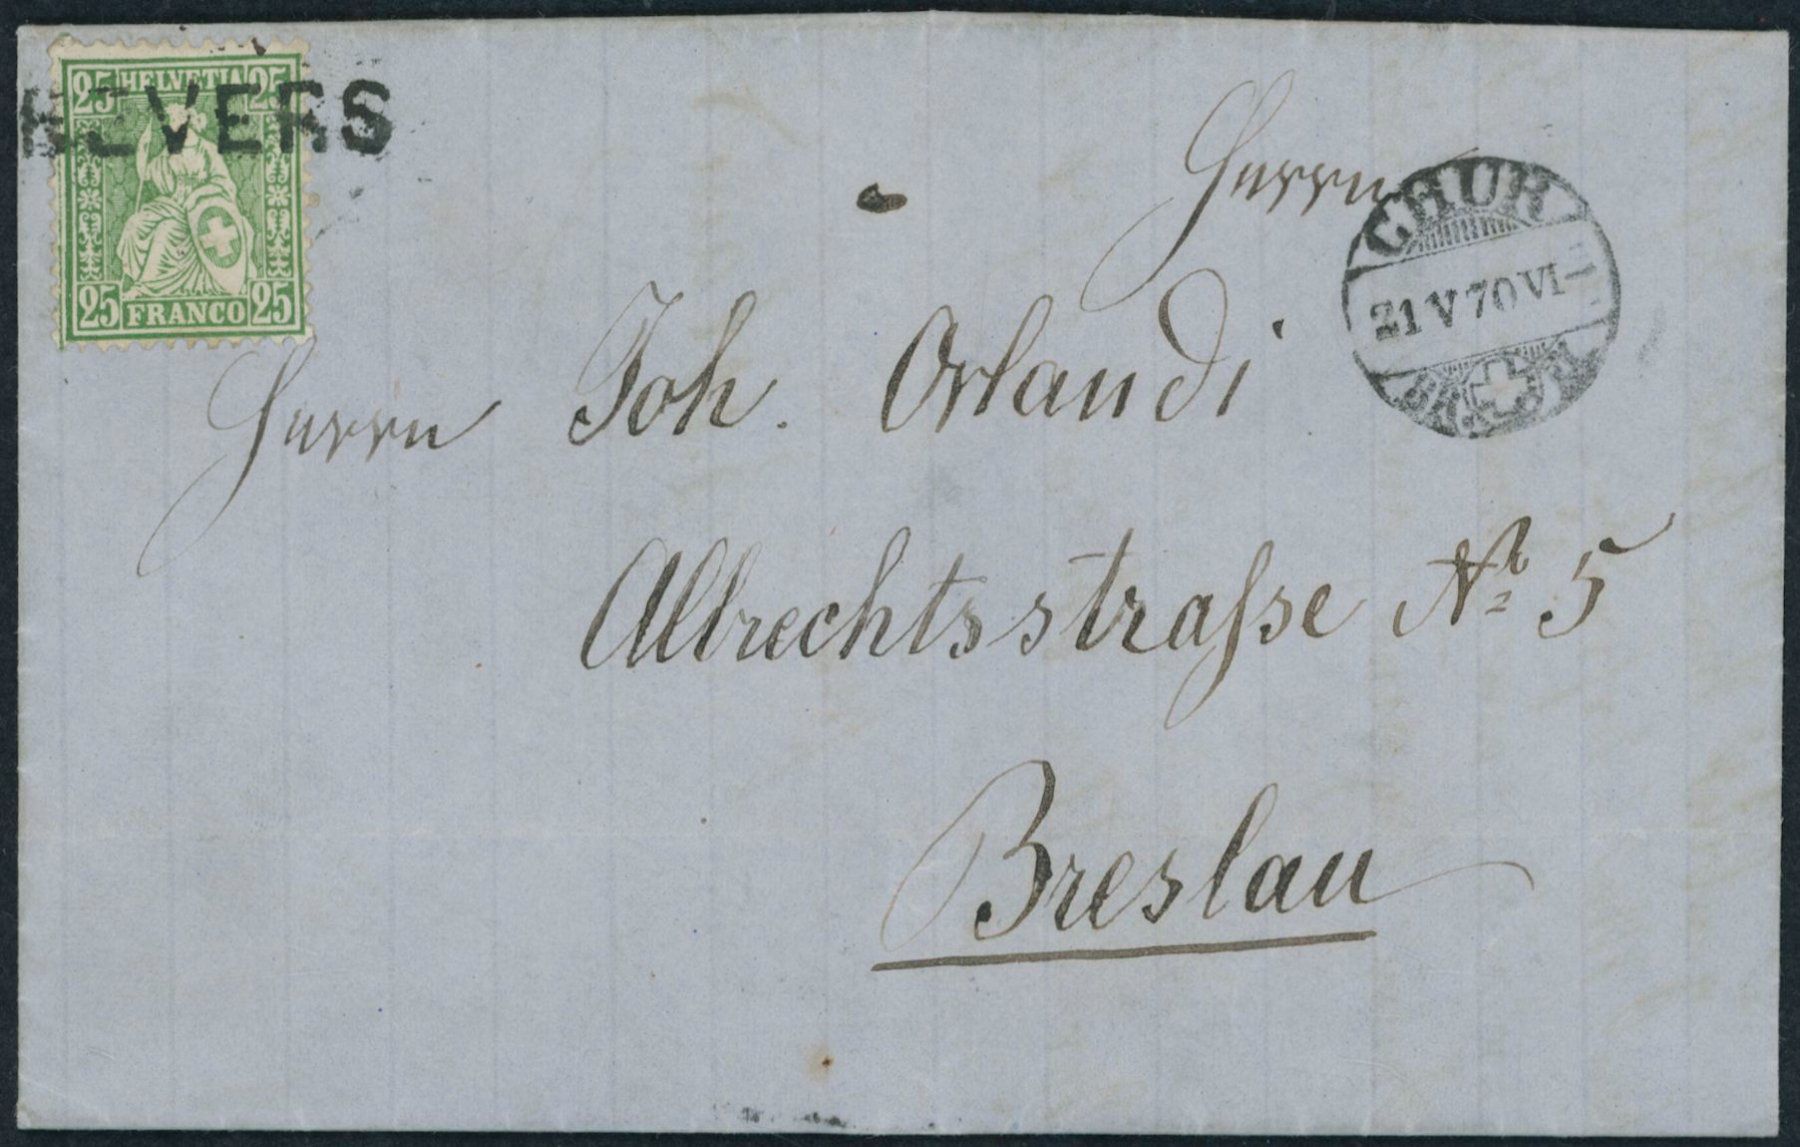 25 HELVETIA 25
25 FRANCO 25
BEVERS
CHUR
21 V 70 VI
Herrn
Herrn Joh. Orlandi
Albrechtsstraſse No 5
Breslau